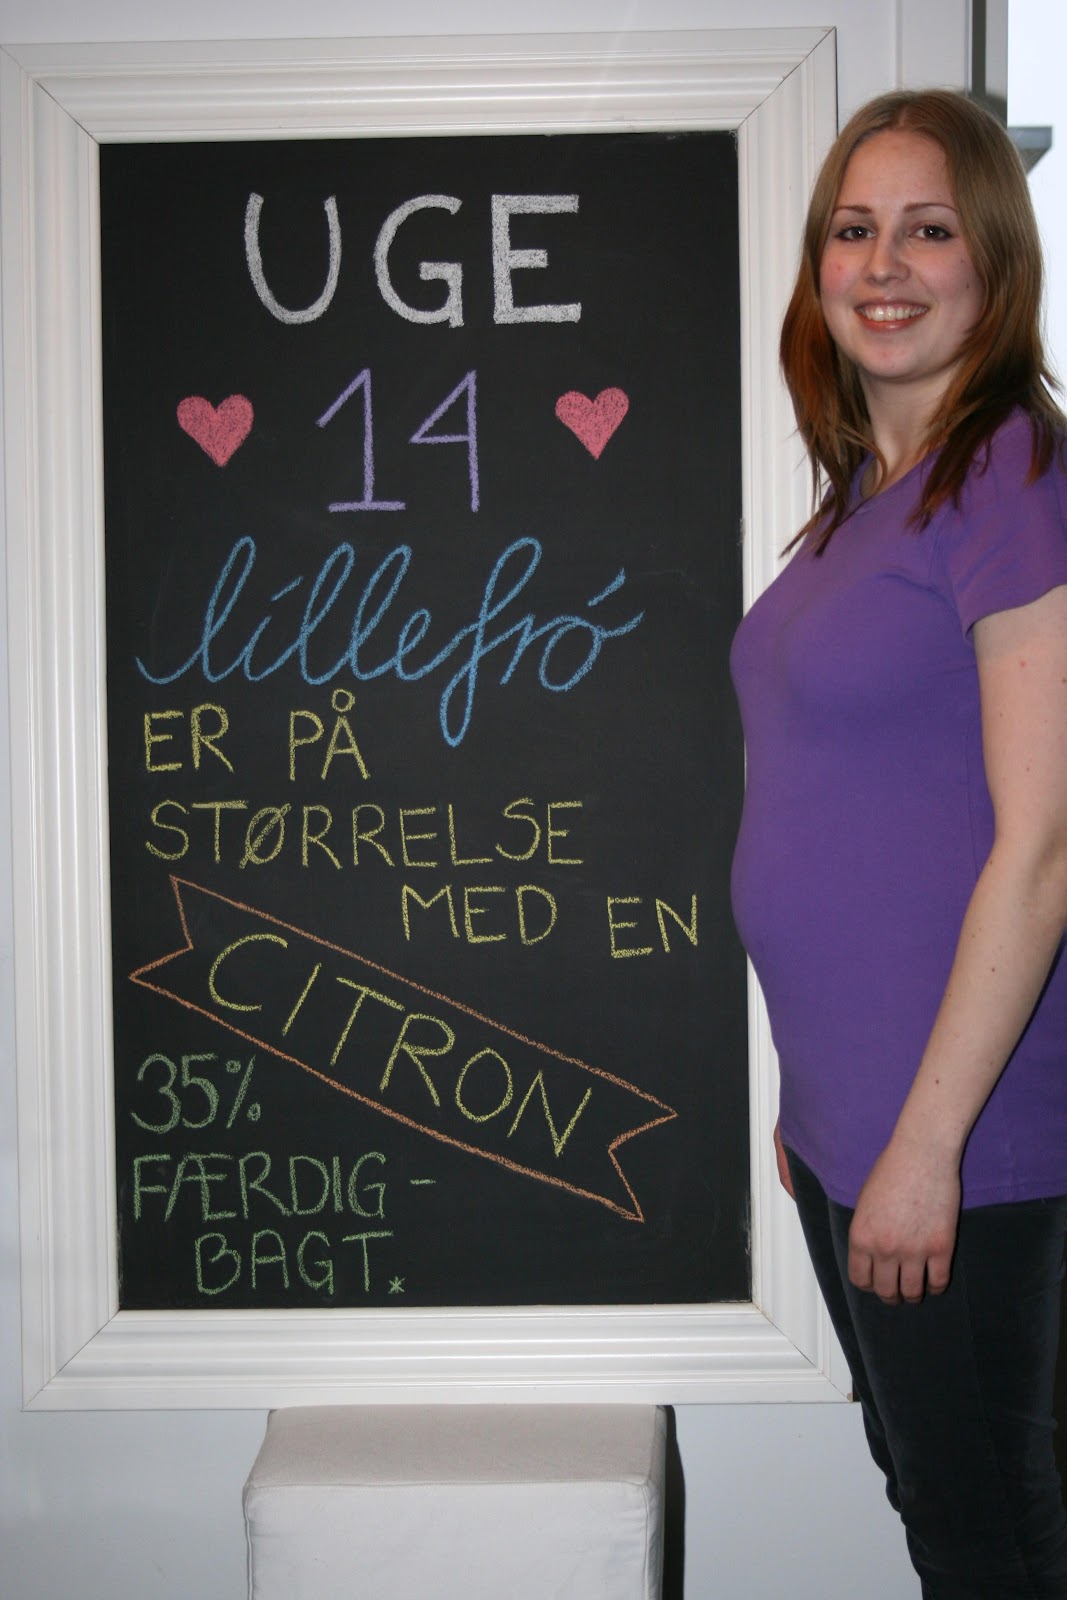 UGE
14
lillefró
ER PÅ
STØRRELSE
MED EN
CITRON
35%
FÆRDIG-
BAGT.*